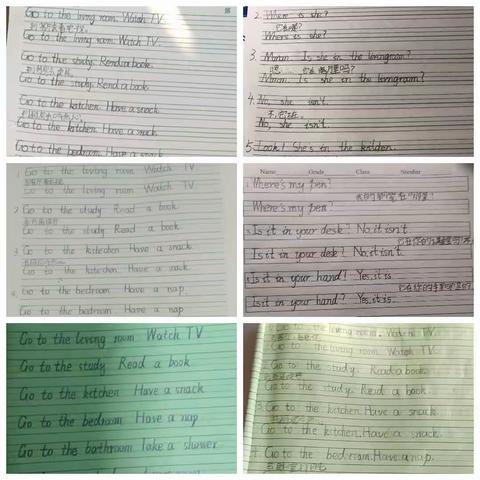 Go to the living room. Watch TV.
Go to the living room. Watch TV.
Go to the study. Read a book.
Go to the study. Read a book.
Go to the kitchen. Have a snack.
Go to the kitchen. Have a snack.
Go to the bedroom. Have a snack
2. Where is she?
Where is she?
3. Mmm. Is she in the livingroom?
Mmm. Is she in the livingroom?
4. No, she isn't.
No, she isn't.
5. Look! She's in the kitchen.
1 Go to the living room Watch TV.
Go to the living room Watch TV.
2 Go to the study Read a book
Go to the study Read a book
3 Go to the kitchen Have a snack
Go to the kitchen Have a snack
4 Go to the bedroom Have a nap
Go to the bedroom Have a nap
Name Grade Class Number
Where's my pen?
我的钢笔在哪里?
Where's my pen?
Is it in your desk? No, it isn't.
Is it in your desk? No, it isn't.
Is it in your hand? Yes, it is.
Is it in your hand? Yes, it is.
Go to the living room Watch TV
Go to the study. Read a book
Go to the kitchen Have a snack
Go to the bedroom Have a nap
Go to the bathroom Take a shower
Go to the living room. Watch TV.
Go to the living room Watch TV.
Go to the study. Read a book.
Go to the study. Read a book.
3. Go to the kitchen. Have a snack.
Go to the kitchen. Have a snack.
4. Go to the bedroom. Have a nap.